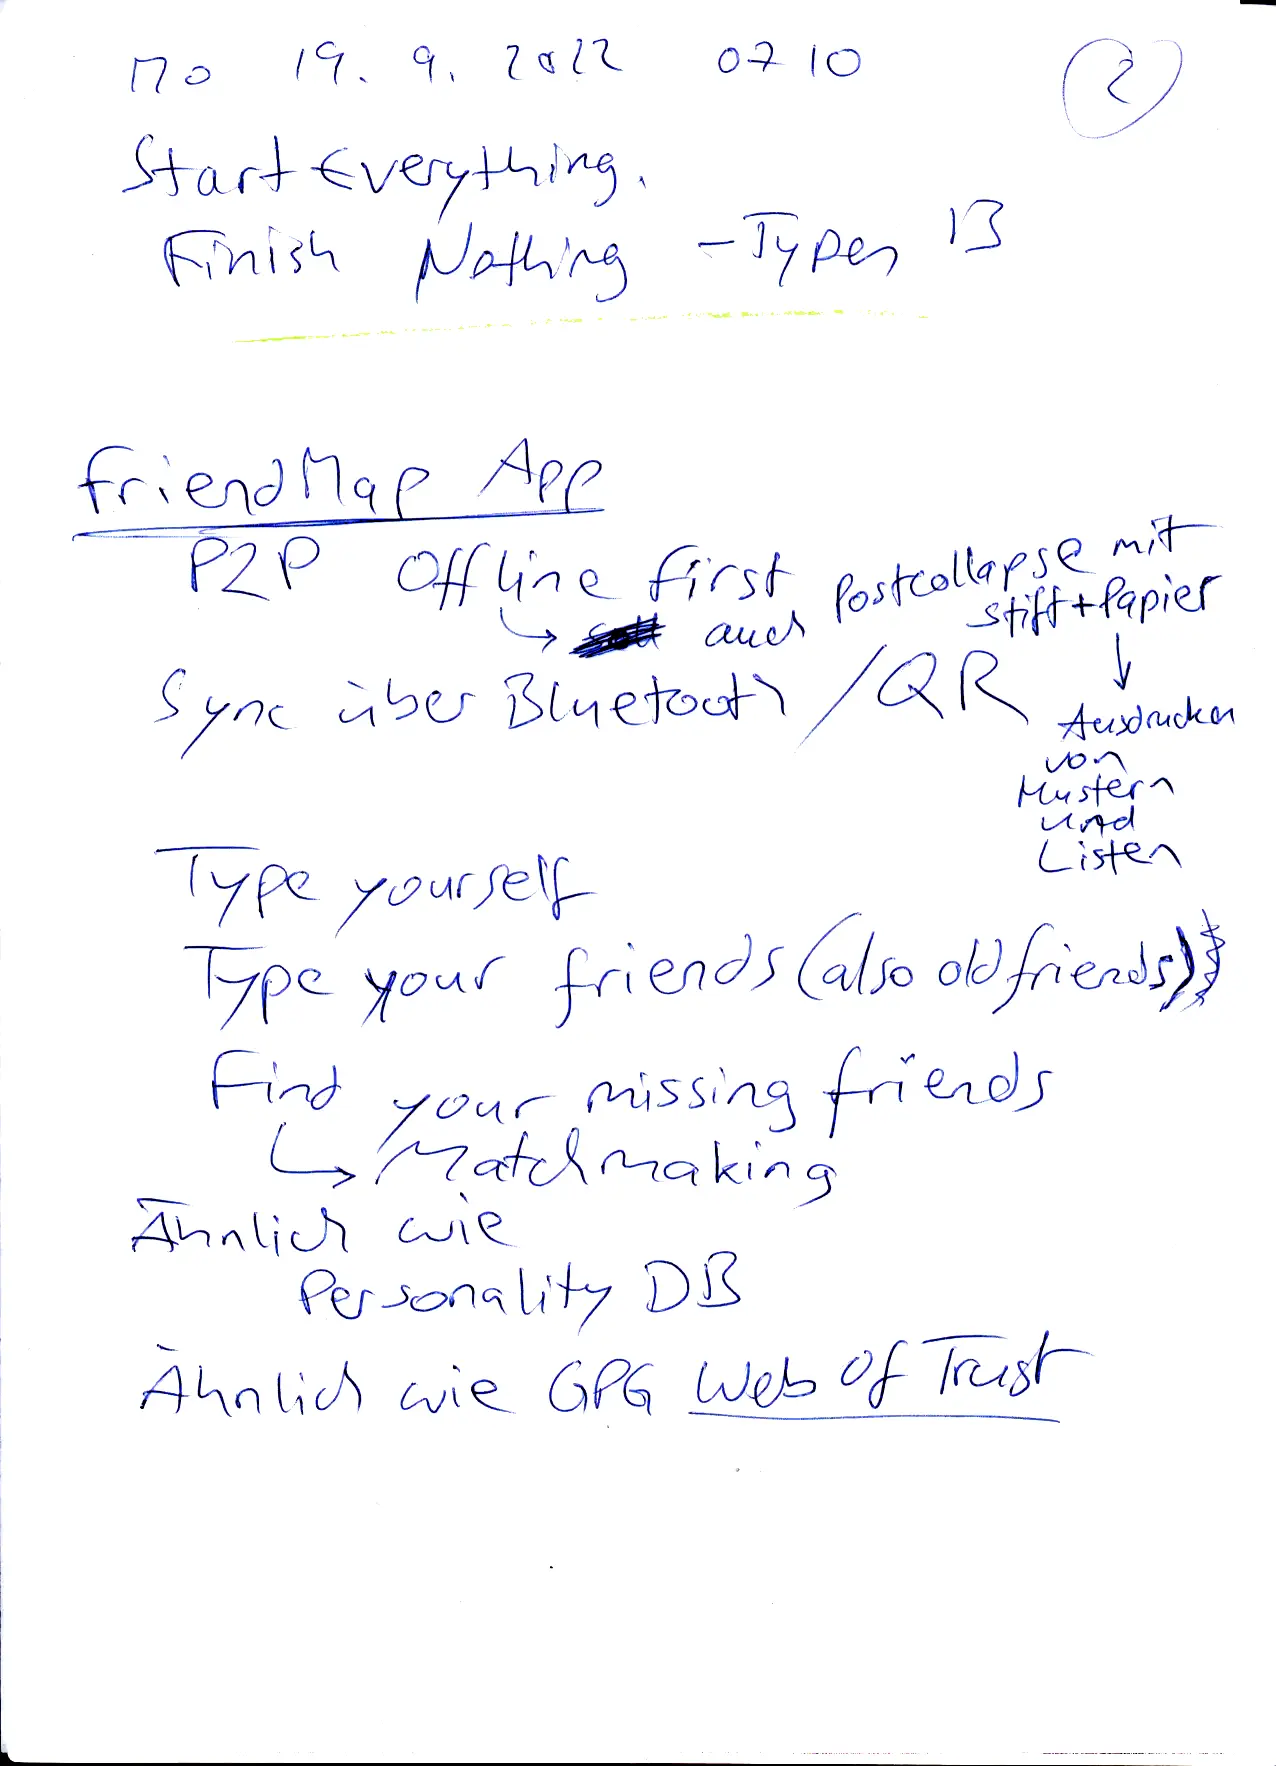 Mo 19. 9. 2022 0710
2
Start Everything.
Finish Nothing - Typen 13
FriendMap App
P2P Offline first
→ auch Postcollapse mit
Stift + Papier
↓
Ausdrucken
von
Mustern
und
Listen
Sync über Bluetooth / QR
Type yourself
Type your friends (also old friends)
Find your missing friends
→ Matchmaking
Ähnlich wie
Personality DB
Ähnlich wie GPG Web Of Trust